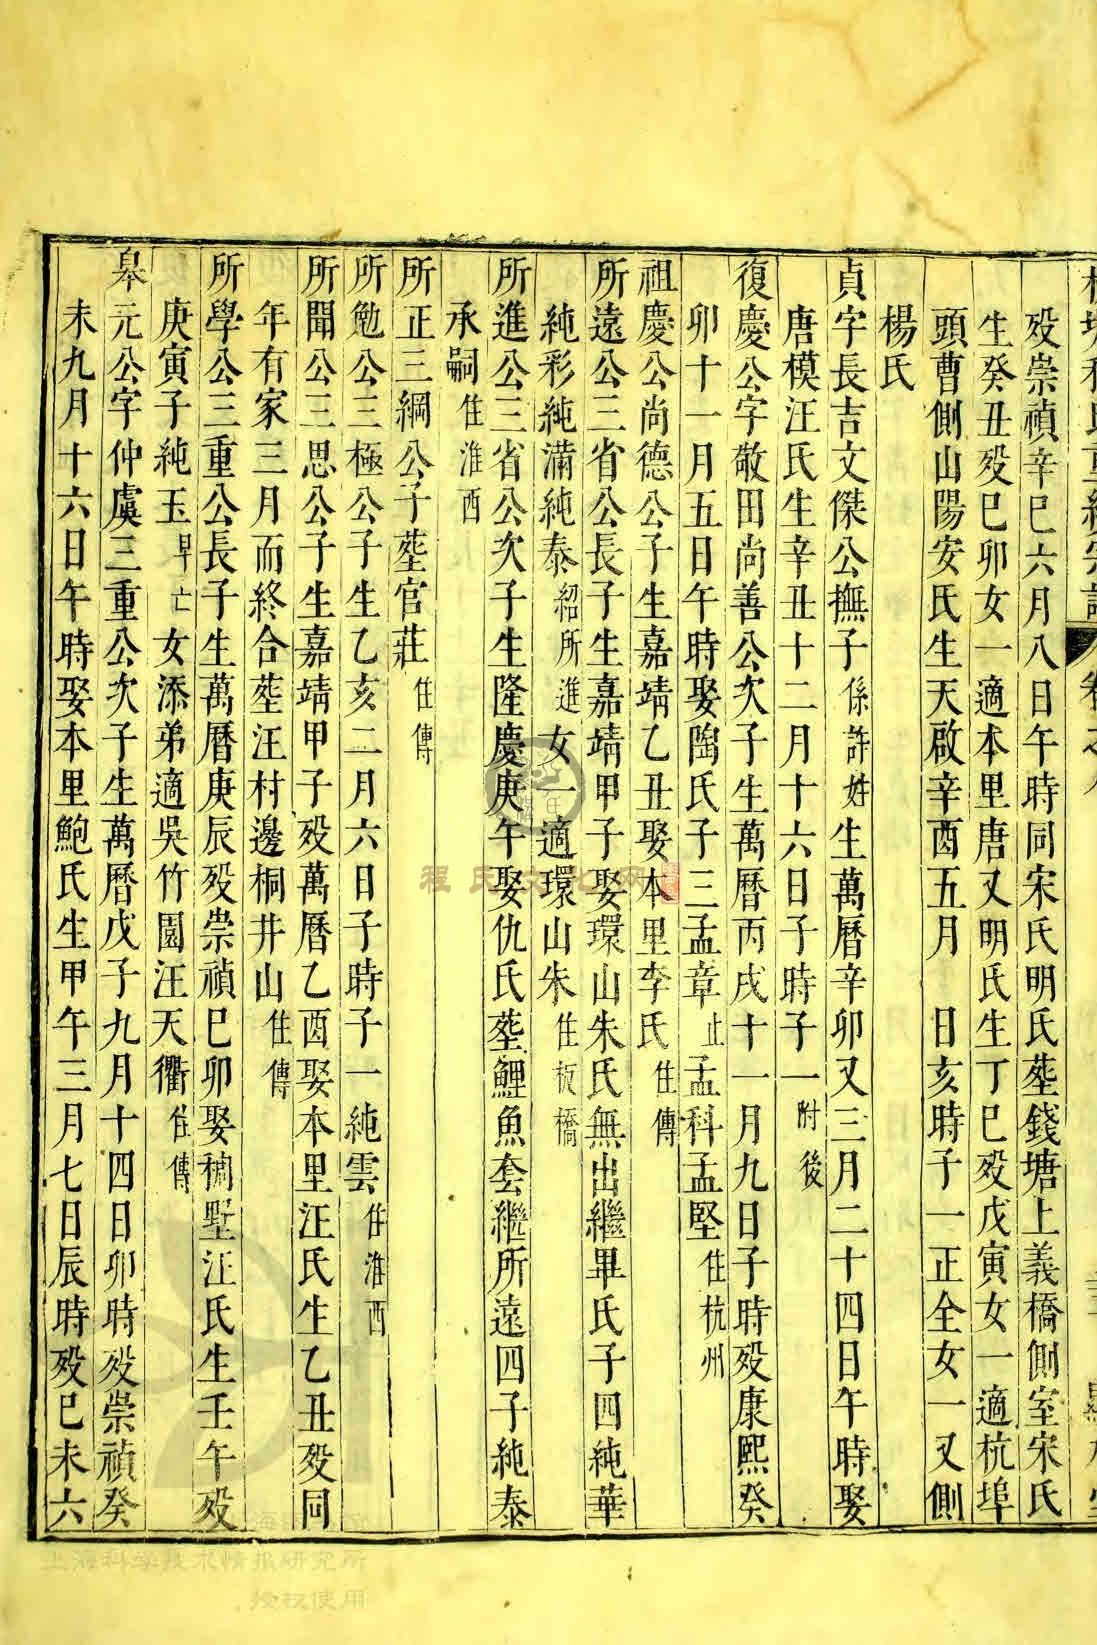 歿崇禎辛巳六月八日午時同宋氏明氏塟錢塘上義橋側室宋氏
生癸丑歿巳卯女一適本里唐又明氏生丁巳歿戊寅女一適杭埠
頭曹側山陽安氏生天啟辛酉五月　日亥時子一正全女一又側
楊氏
貞字長吉文傑公撫子係許姓生萬曆辛卯又三月二十四日午時娶
唐模汪氏生辛丑十二月十六日子時子一附後
復慶公字敬田尚善公次子生萬曆丙戌十一月九日子時歿康熙癸
卯十一月五日午時娶陶氏子三孟章止孟科孟堅住杭州
祖慶公尚德公子生嘉靖乙丑娶本里李氏住傳
所遠公三省公長子生嘉靖甲子娶環山朱氏無出繼畢氏子四純華
純彩純滿純泰紹所進女一適環山朱住板橋
所進公三省公次子生隆慶庚午娶仇氏塟鯉魚套繼所遠四子純泰
承嗣住淮西
所正三綱公子塟官莊住傳
所勉公三極公子生乙亥二月六日子時子一純雲住淮西
所聞公三思公子生嘉靖甲子歿萬曆乙酉娶本里汪氏生乙丑歿同
年有家三月而終合塟汪村邊桐井山住傳
所學公三重公長子生萬曆庚辰歿崇禎巳卯娶稠墅汪氏生壬午歿
庚寅子純玉早亡女添弟適吳竹園汪天衢住傳
皋元公字仲虞三重公次子生萬曆戊子九月十四日卯時歿崇禎癸
未九月十六日午時娶本里鮑氏生甲午三月七日辰時歿巳未六
程氏文化网
上海科学技术情报研究所
授权使用